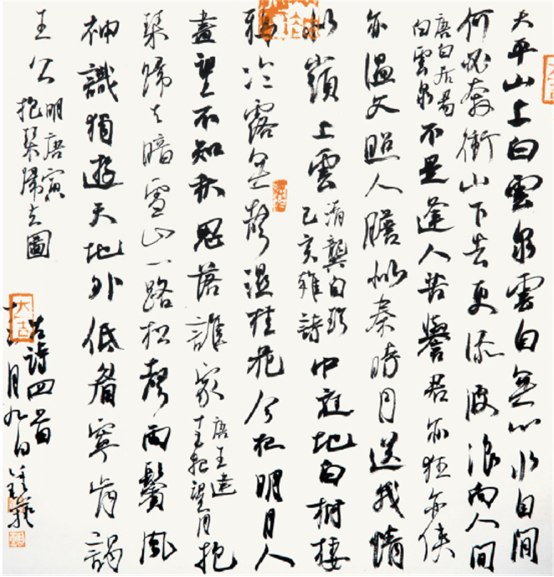 天平山上白雲泉雲自無心水自閒
何必奔衝山下去更添波浪向人間
唐白居易
白雲泉
不是逢人苦譽君亦狂亦俠
亦溫文照人膽似秦時月送我情
似嶺上雲
清龔自珍
己亥雜詩
中庭地白樹棲
鴉冷露無聲濕桂花今夜明月人
盡望不知秋思落誰家
唐王建
十五夜望月
抱
琴歸去山一路松聲兩鬢風
神識獨遊天地外低眉寧肯謁
王公
明唐寅
抱琴歸去圖
古詩四首
月九日